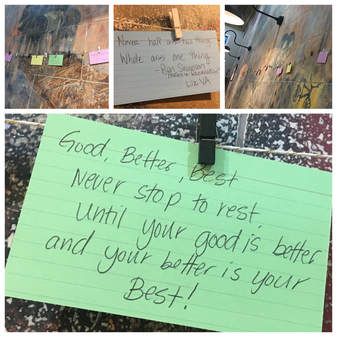 Never half ass two things,
Whole ass one thing.
-Ron Swanson
Liz VA
Good, Better, Best
Never stop to rest
Until your good is better
and your better is your
Best!